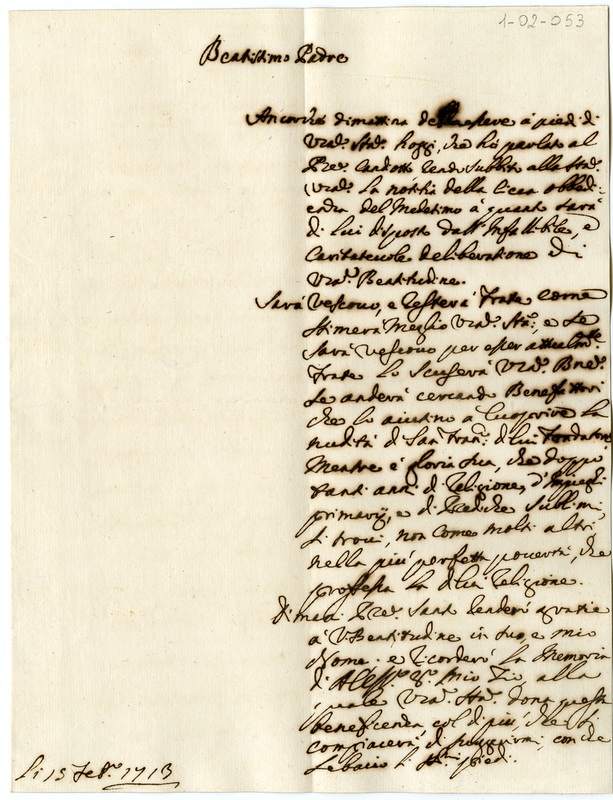 1-02-053
Beatissimo Padre
Ancorche dimattina esser a piedi di
Vrã. Stà. hoggi, che hò parlato al
Pre. rendo subbito alla Stà.
Vrã. la notitia della cieca obbedi-
enza del Medesimo à quanto sarà
di lui disposto dall' Infallibile, e
Caritatevole deliberatione di
Vrã. Beatitudine.
Sarà Vescovo, e resterà frate come
stimerà meglio Vrã. Stà.; e se
sarà Vescovo per esser
frate lo scuserà Vrã. Bne.
se anderà cercando Benefattori
che lo aiutino a cuoprire la
nudità di San Fran. di lui fondatore
Mentre è gloria sua, che doppo
tanti anni di religione, d'impieghi
primarij, e di Prediche sublimi,
si trovi, non come molti altri
nella più perfetta povertà, che
professa la di lui religione.
Dimani Pre. Sant renderò gratie
a V. Beatitudine in suo, e mio
Nome: e ricorderò la Memoria
di Aless. mio Zio, alla
quale Vrã. Stà. dona questa
beneficenza, col di più, che si
compiacerà di; con che
le bacio i Sti. piedi.
li 15 Feb. 1713